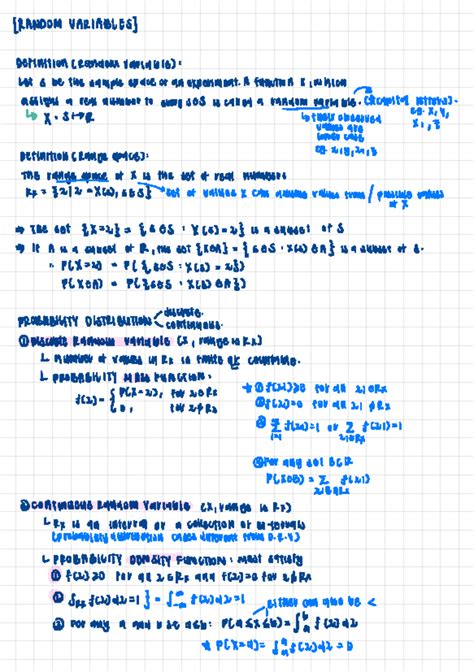 [RANDOM VARIABLES]
Definition (Random Variable):
Let S be the sample space of an experiment. A function X, which
assigns a real number to every s∈S is called a random variable. (capital letters).
↳ X : S ↦ R
eg. X, Y,
X₁, Z
↳ their observed
values are
lower case
eg. x, y, z
Definition (Range space):
The range space of X is the set of real numbers
Rx = {x | x = X(s), s∈S}
set of values X can assume values from / possible values
of X
⇒ The set {X=x} = {s∈S : X(s) = x} is a subset of S
⇒ If A is a subset of R, the set {X∈A} = {s∈S : X(s)∈A} is a subset of S.
∴ P(X=x) = P({s∈S : X(s) = x})
P(X∈A) = P({s∈S : X(s)∈A})
PROBABILITY DISTRIBUTION
discrete.
continuous.
① Discrete Random Variable (X, range is Rx)
↳ number of values in Rx is finite or countable.
↳ PROBABILITY MASS FUNCTION:
f(x) = { P(X=x), for x∈Rx
0, for x∉Rx
① f(xi)≥0 for all xi∈Rx
② f(x)=0 for all xi ∉Rx
③ Σ i=1 f(xi)=1 or Σ xi∈Rx f(xi)=1
④ For any set B⊂R
P(X∈B) = Σ f(xi)
xi∈B∩Rx
② Continuous Random Variable (X, range is Rx)
↳ Rx is an interval or a collection of intervals
(probability distribution cases different from D.R.V)
↳ PROBABILITY DENSITY FUNCTION: must satisfy
① f(x)≥0 for all x∈Rx and f(x)=0 for x∉Rx
② ∫Rx f(x)dx=1 } = ∫-∞^∞ f(x)dx=1
either can also be <
③ For any a and b st a≤b: P(a≤X≤b) = ∫a^b f(x)dx
* P(X=a) = ∫a^a f(x)dx = 0